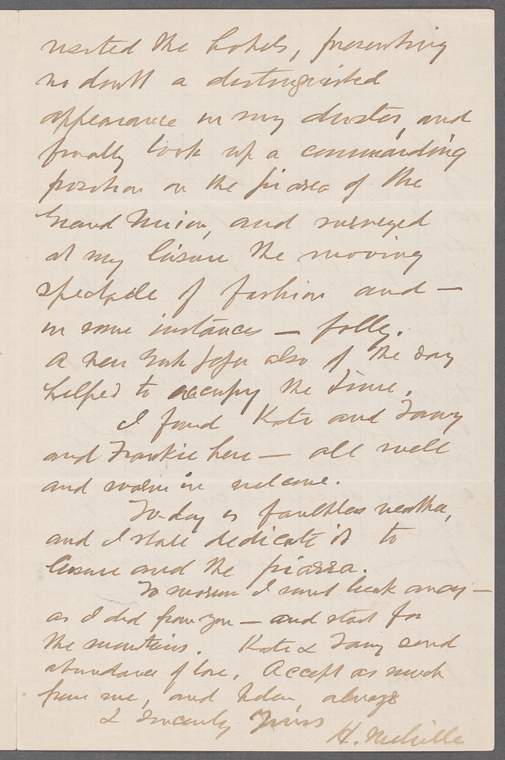 visited the hotels, presenting
no doubt a distinguished
appearance in my duster, and
finally took up a commanding
position on the piazza of the
Grand Union, and surveyed
at my leisure the moving
spectacle of fashion and —
in some instances — folly.
A New York paper also of the day
helped to occupy the time.
I found Kate and Fanny
and Frankie here — all well
and warm in welcome.
To-day is faultless weather,
and I shall dedicate it to
leisure and the piazza.
To morrow I must break away —
as I did from you — and start for
the mountains. Kate & Fanny send
abundance of love. Accept as much
from me, and believe me always
& Sincerely Yours
H. Melville